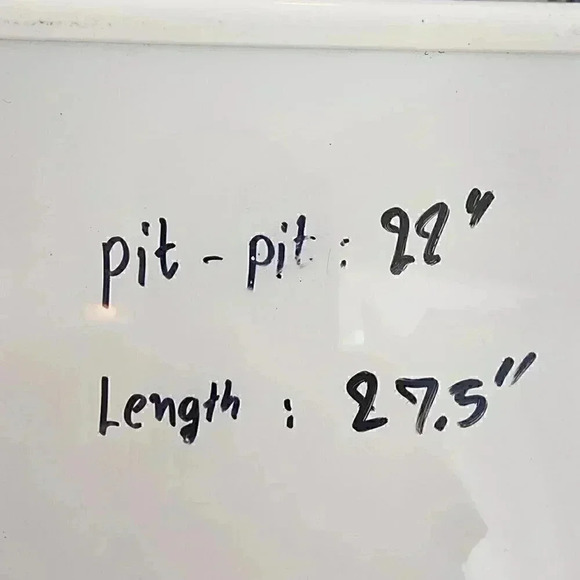 pit - pit : 22"
Length : 27.5"